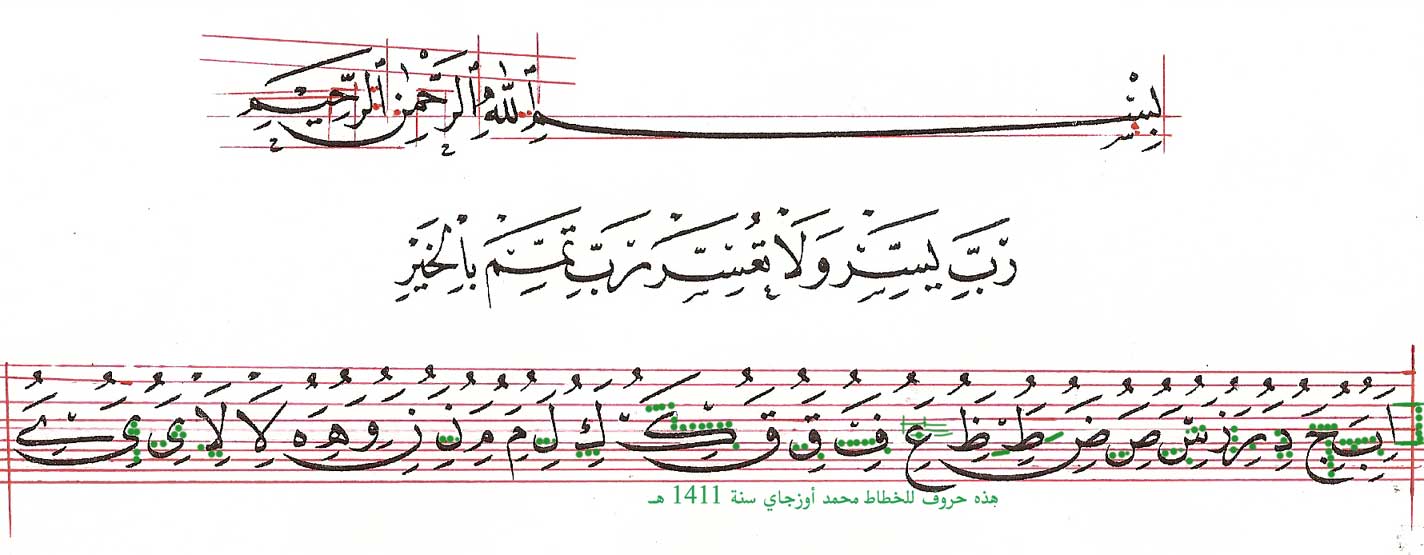 بِسْمِ ٱللّٰهِ ٱلرَّحْمٰنِ ٱلرَّحِيمِ
رَبِّ يَسِّرْ وَلَا تُعَسِّرْ رَبِّ تَمِّمْ بِالْخَيْرِ
ا ب ج د ر ز س ص ض ط ظ ع ف ق ق ك ك ل م م ن ز و ه ه لا لا ي ي
هذه حروف للخطاط محمد أوزجاي سنة 1411 هـ